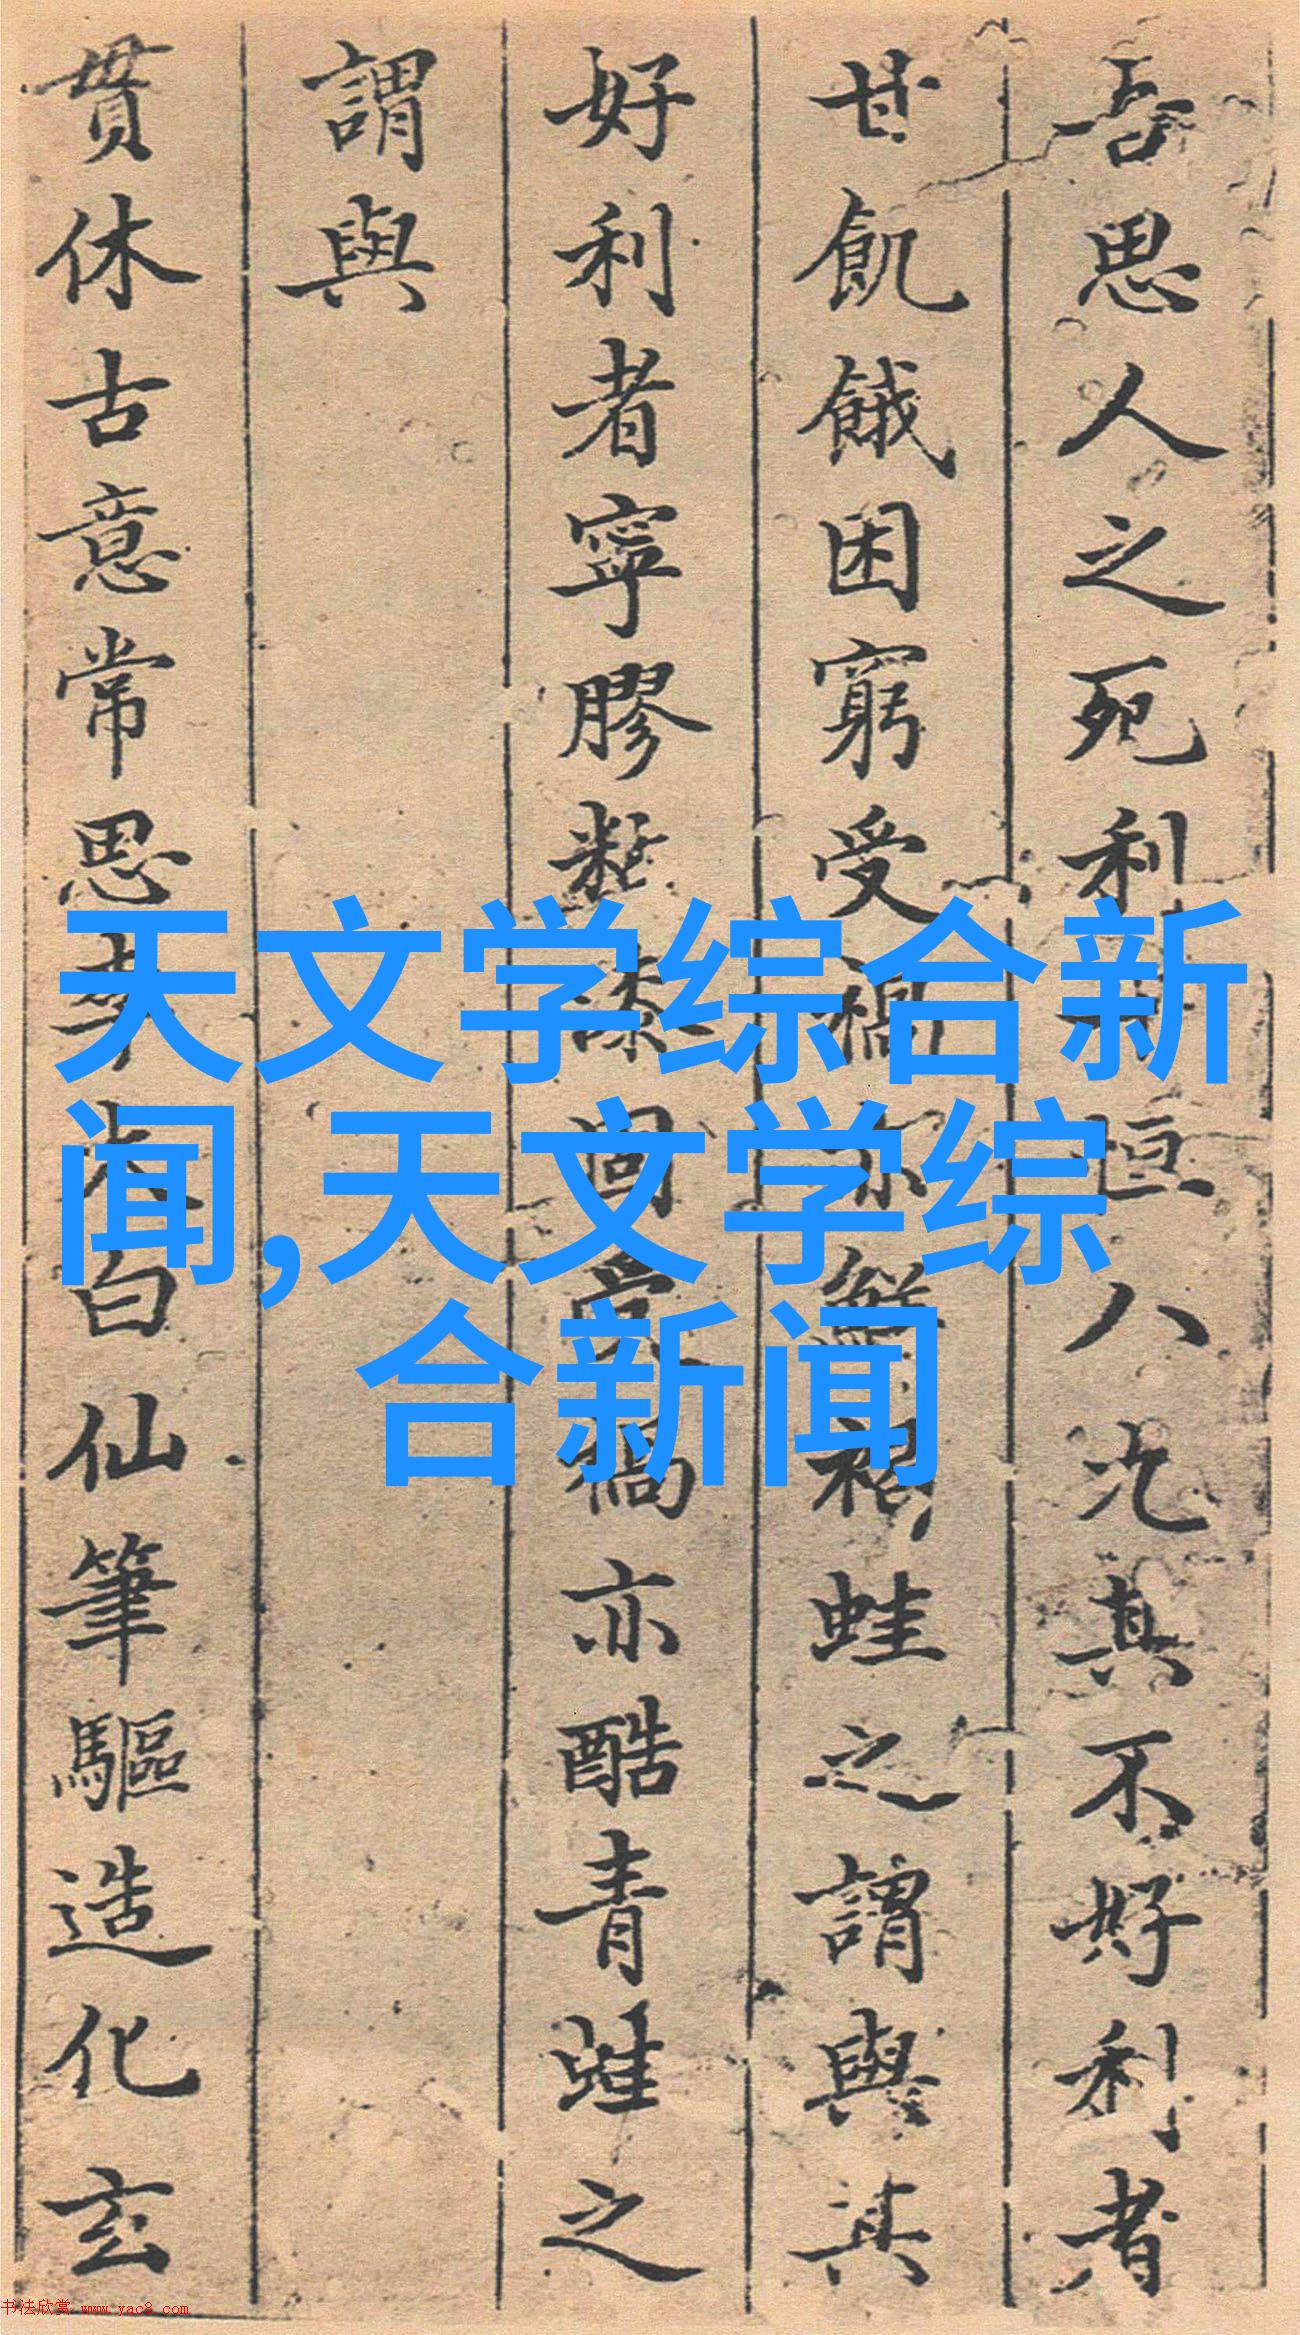 吾思人之死利恒八九其不好利者
甘飢餓困窮受禍亦無禍蛙之謂與其
好利者寧膠黏漆固受禍亦酷青蛙之
謂與
贯休古意常思李太白仙筆驅造化玄
天文学综合新
闻,天文学综
合新闻
书法欣赏 www.yac8.com